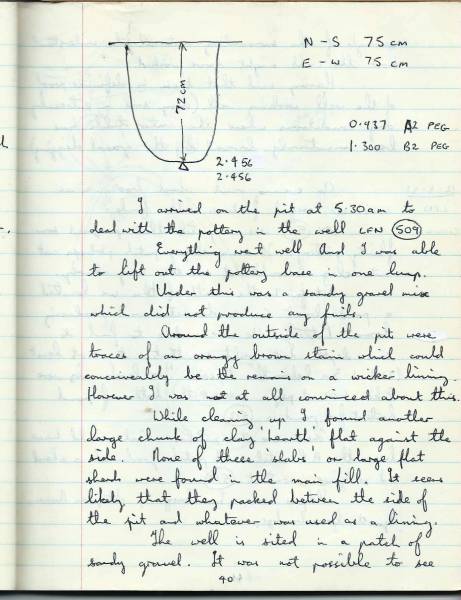 N-S 75cm
E-W 75cm
72cm
0.437 A2 PEG
1.300 B2 PEG
2.456
2.456
I arrived on the pit at 5.30am to
deal with the pottery in the well LFN 509
Everything went well And I was able
to lift out the pottery base in one lump.
Under this was a sandy gravel mix
which did not produce any finds.
Around the outside of the pit were
traces of an orangy brown stain which could
conceivably be the remains on a wicker lining.
However I was not at all convinced about this.
While cleaning up I found another
large chunk of clay 'hearth' flat against the
side. None of these 'slabs' or large flat
sherds were found in the main fill. It seems
likely that they packed between the side of
the pit and whatever was used as a lining.
The well is sited in a patch of
sandy gravel. It was not possible to see
40